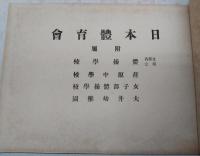 日本體育會
附屬
體操學校
荏原中學校
女子部體操學校
大井幼稚園